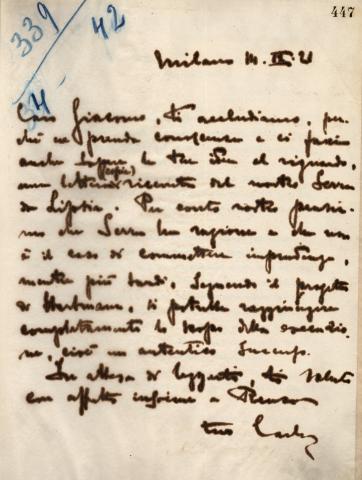 447
339
42
34
Milano 11. IX. 21
Caro Giacomo, ti accludiamo, per-
chè ne prenda conoscenza e ci faccia
anche sapere le tue idee al riguardo,
una lettera (copia) ricevuta dal nostro Serra
da Lipsia. Per conto nostro pensia-
mo che Serra ha ragione e che non
è il caso di commettere imprudenze,
mentre più tardi, seguendo il progetto
di Hartmann, si potrebbe raggiungere
completamente lo scopo della esecuzio-
ne, cioè un autentico successo.
In attesa di leggerti, ti saluto
con affetto insieme a Renzo
tuo Carlo